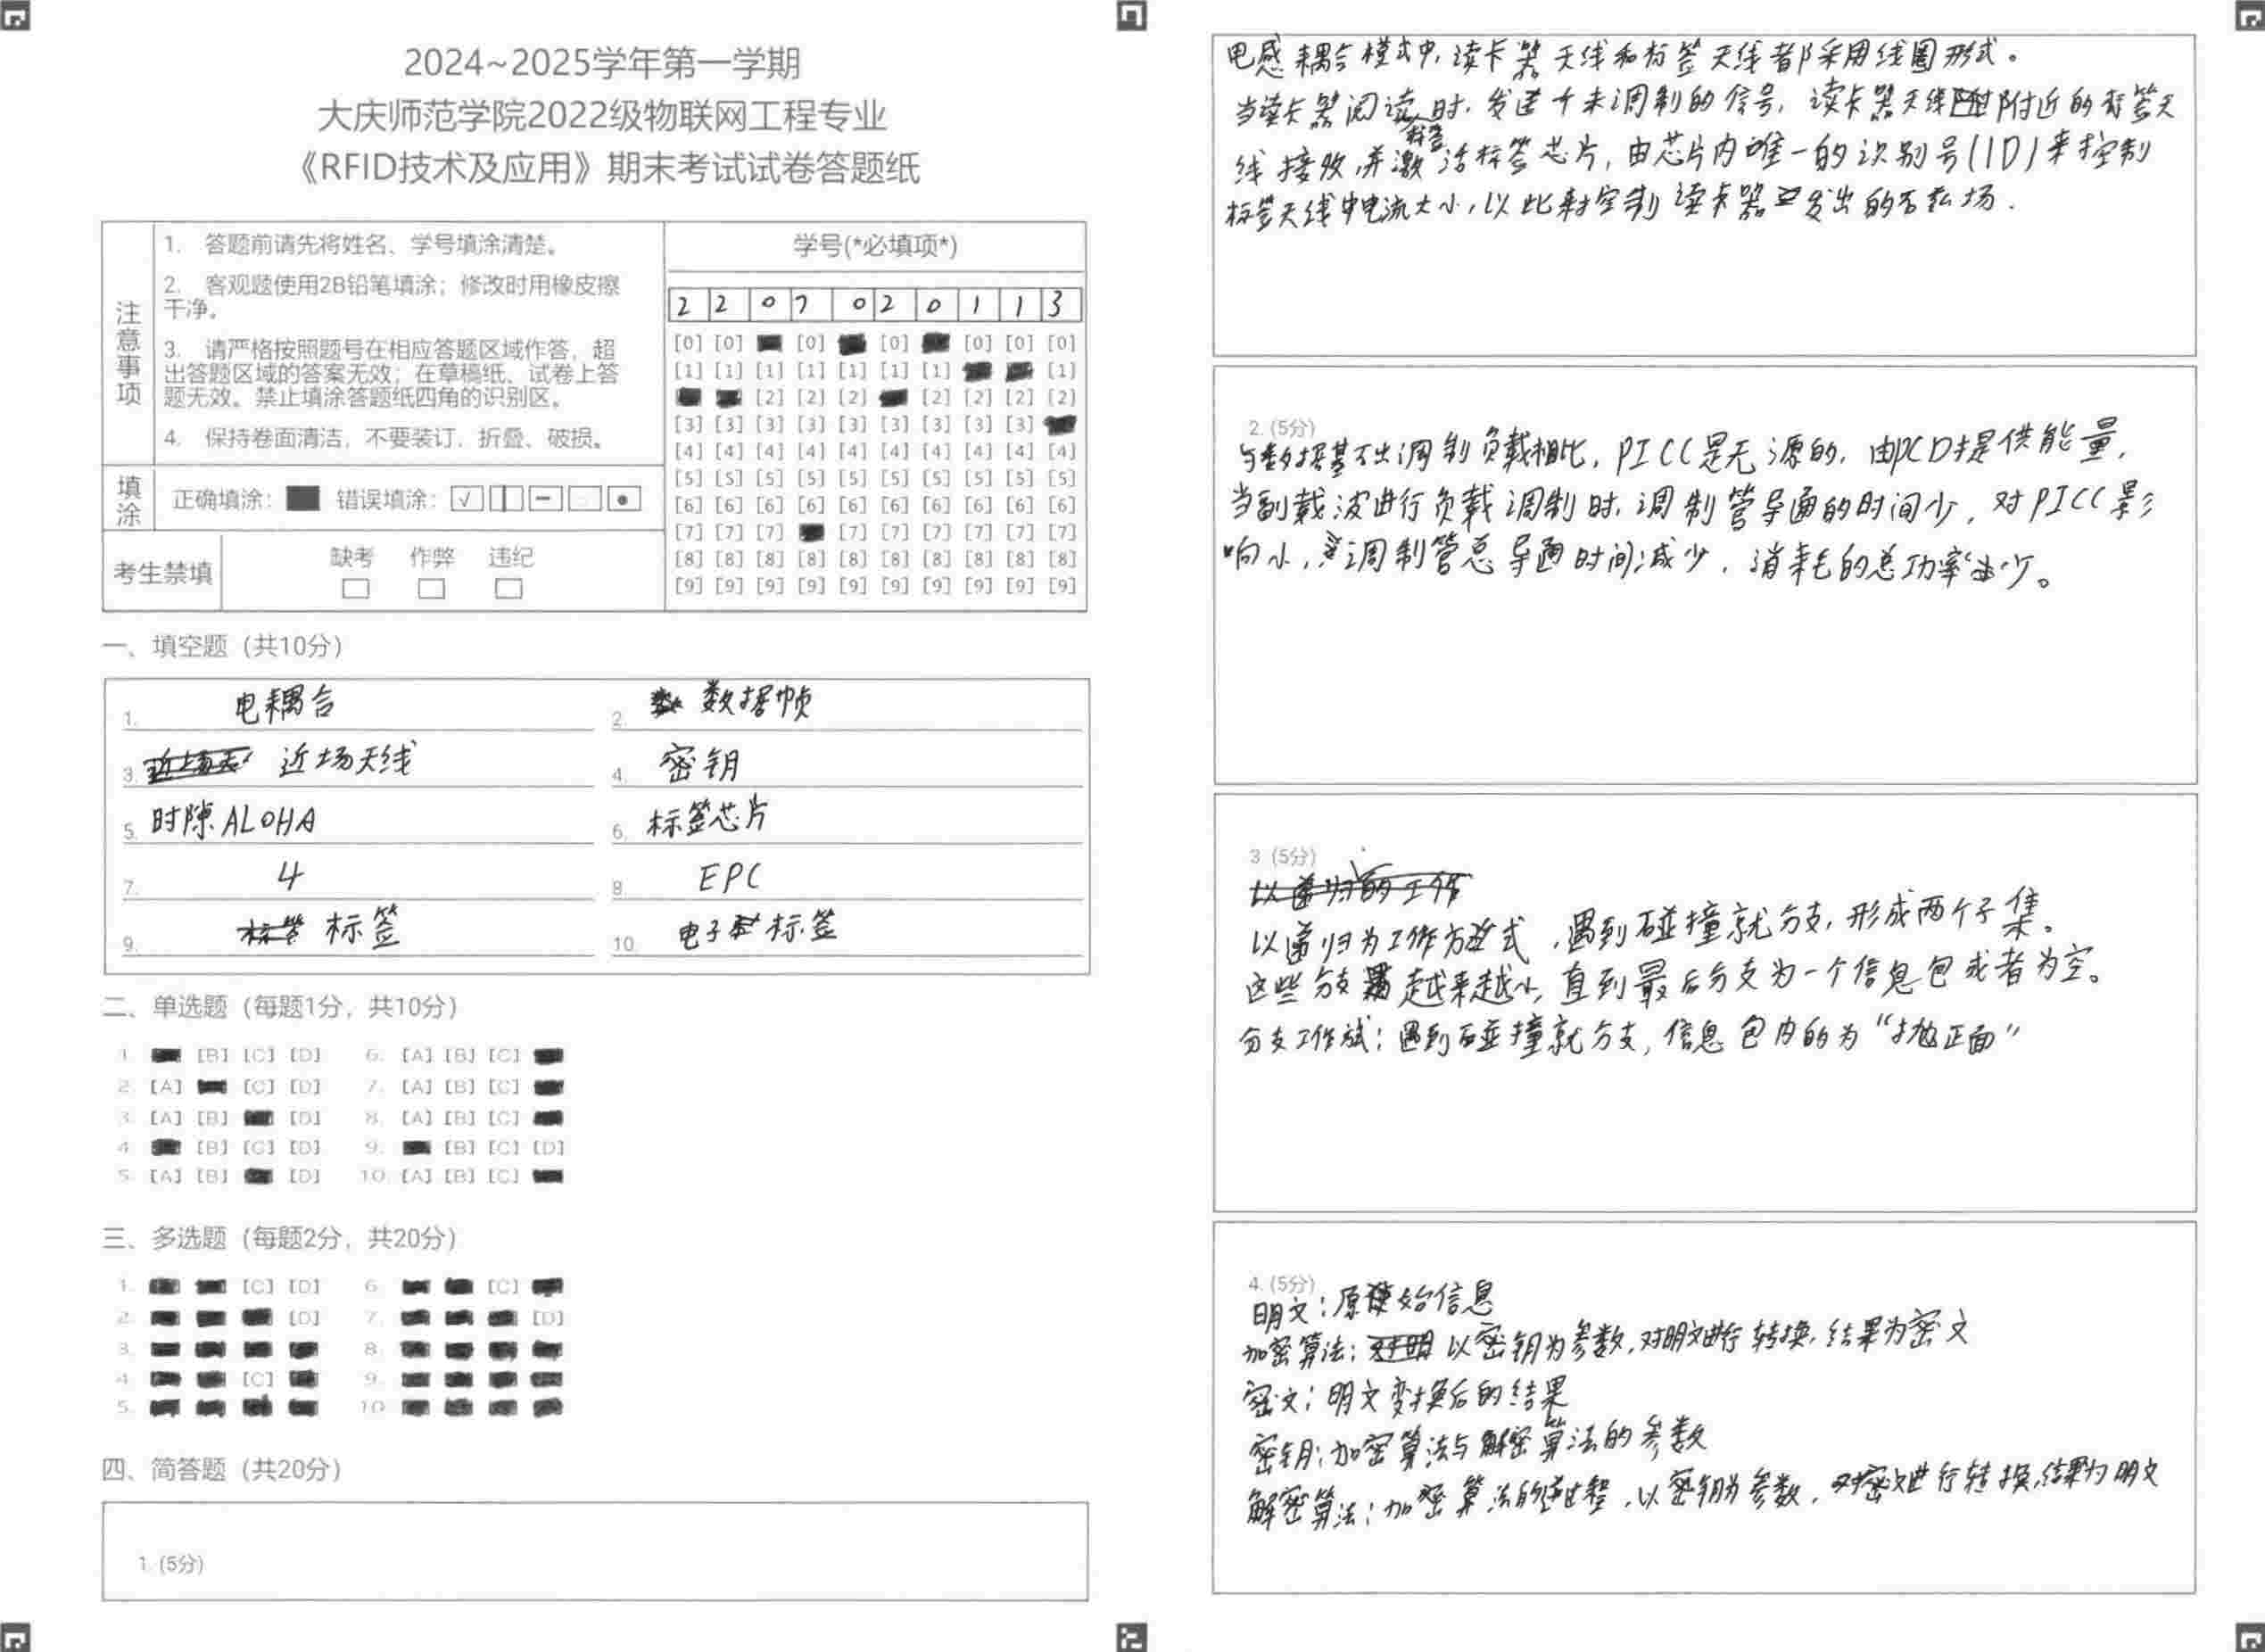 2024~2025学年第一学期
大庆师范学院2022级物联网工程专业
《RFID技术及应用》期末考试试卷答题纸
注意事项
1. 答题前请先将姓名、学号填涂清楚。
2. 客观题使用2B铅笔填涂；修改时用橡皮擦
干净。
3. 请严格按照题号在相应答题区域作答，超
出答题区域的答案无效；在草稿纸、试卷上答
题无效。禁止填涂答题纸四角的识别区。
4. 保持卷面清洁，不要装订、折叠、破损。
填涂 正确填涂： 错误填涂：
考生禁填 缺考 作弊 违纪
学号(*必填项*)
2 2 0 7 0 2 0 1 1 3
[0] [0] [0] [0] [0] [0] [0]
[1] [1] [1] [1] [1] [1] [1] [1]
[2] [2] [2] [2] [2] [2] [2]
[3] [3] [3] [3] [3] [3] [3] [3] [3]
[4] [4] [4] [4] [4] [4] [4] [4] [4] [4]
[5] [5] [5] [5] [5] [5] [5] [5] [5] [5]
[6] [6] [6] [6] [6] [6] [6] [6] [6] [6]
[7] [7] [7] [7] [7] [7] [7] [7] [7]
[8] [8] [8] [8] [8] [8] [8] [8] [8] [8]
[9] [9] [9] [9] [9] [9] [9] [9] [9] [9]
一、填空题（共10分）
1. 电耦合 2. 数据帧
3. 近场天线 4. 密钥
5. 时隙ALOHA 6. 标签芯片
7. 4 8. EPC
9. 标签 10. 电子标签
二、单选题（每题1分，共10分）
1. [B] [C] [D] 6. [A] [B] [C]
2. [A] [C] [D] 7. [A] [B] [C]
3. [A] [B] [D] 8. [A] [B] [C]
4. [B] [C] [D] 9. [B] [C] [D]
5. [A] [B] [D] 10. [A] [B] [C]
三、多选题（每题2分，共20分）
1. [C] [D] 6. [C]
2. [D] 7. [D]
3. 8.
4. [C] 9.
5. 10.
四、简答题（共20分）
1. (5分)
电感耦合模式中，读卡器天线和标签天线都采用线圈形式。
当读卡器阅读标签时，发送个未调制的信号，读卡器天线附近的标签天
线接收，并激活标签芯片，由芯片内唯一的识别号(ID)来控制
标签天线中电流大小，以此来控制读卡器发出的磁场.
2. (5分)
与数据基带出调制负载相比，PICC是无源的，由PCD提供能量，
当副载波进行负载调制时，调制管导通的时间少，对PICC影
响小，调制管总导通时间减少，消耗的总功率少。
3. (5分)
以递归为工作方式，遇到碰撞就分支，形成两个子集。
这些分支越来越小，直到最后分支为一个信息包或者为空。
分支工作方式：遇到碰撞就分支，信息包内的为“抛正面”
4. (5分)
明文：原始信息
加密算法：以密钥为参数，对明文进行转换，结果为密文
密文：明文变换后的结果
密钥：加密算法与解密算法的参数
解密算法：加密算法的逆过程，以密钥为参数，对密文进行转换，结果为明文